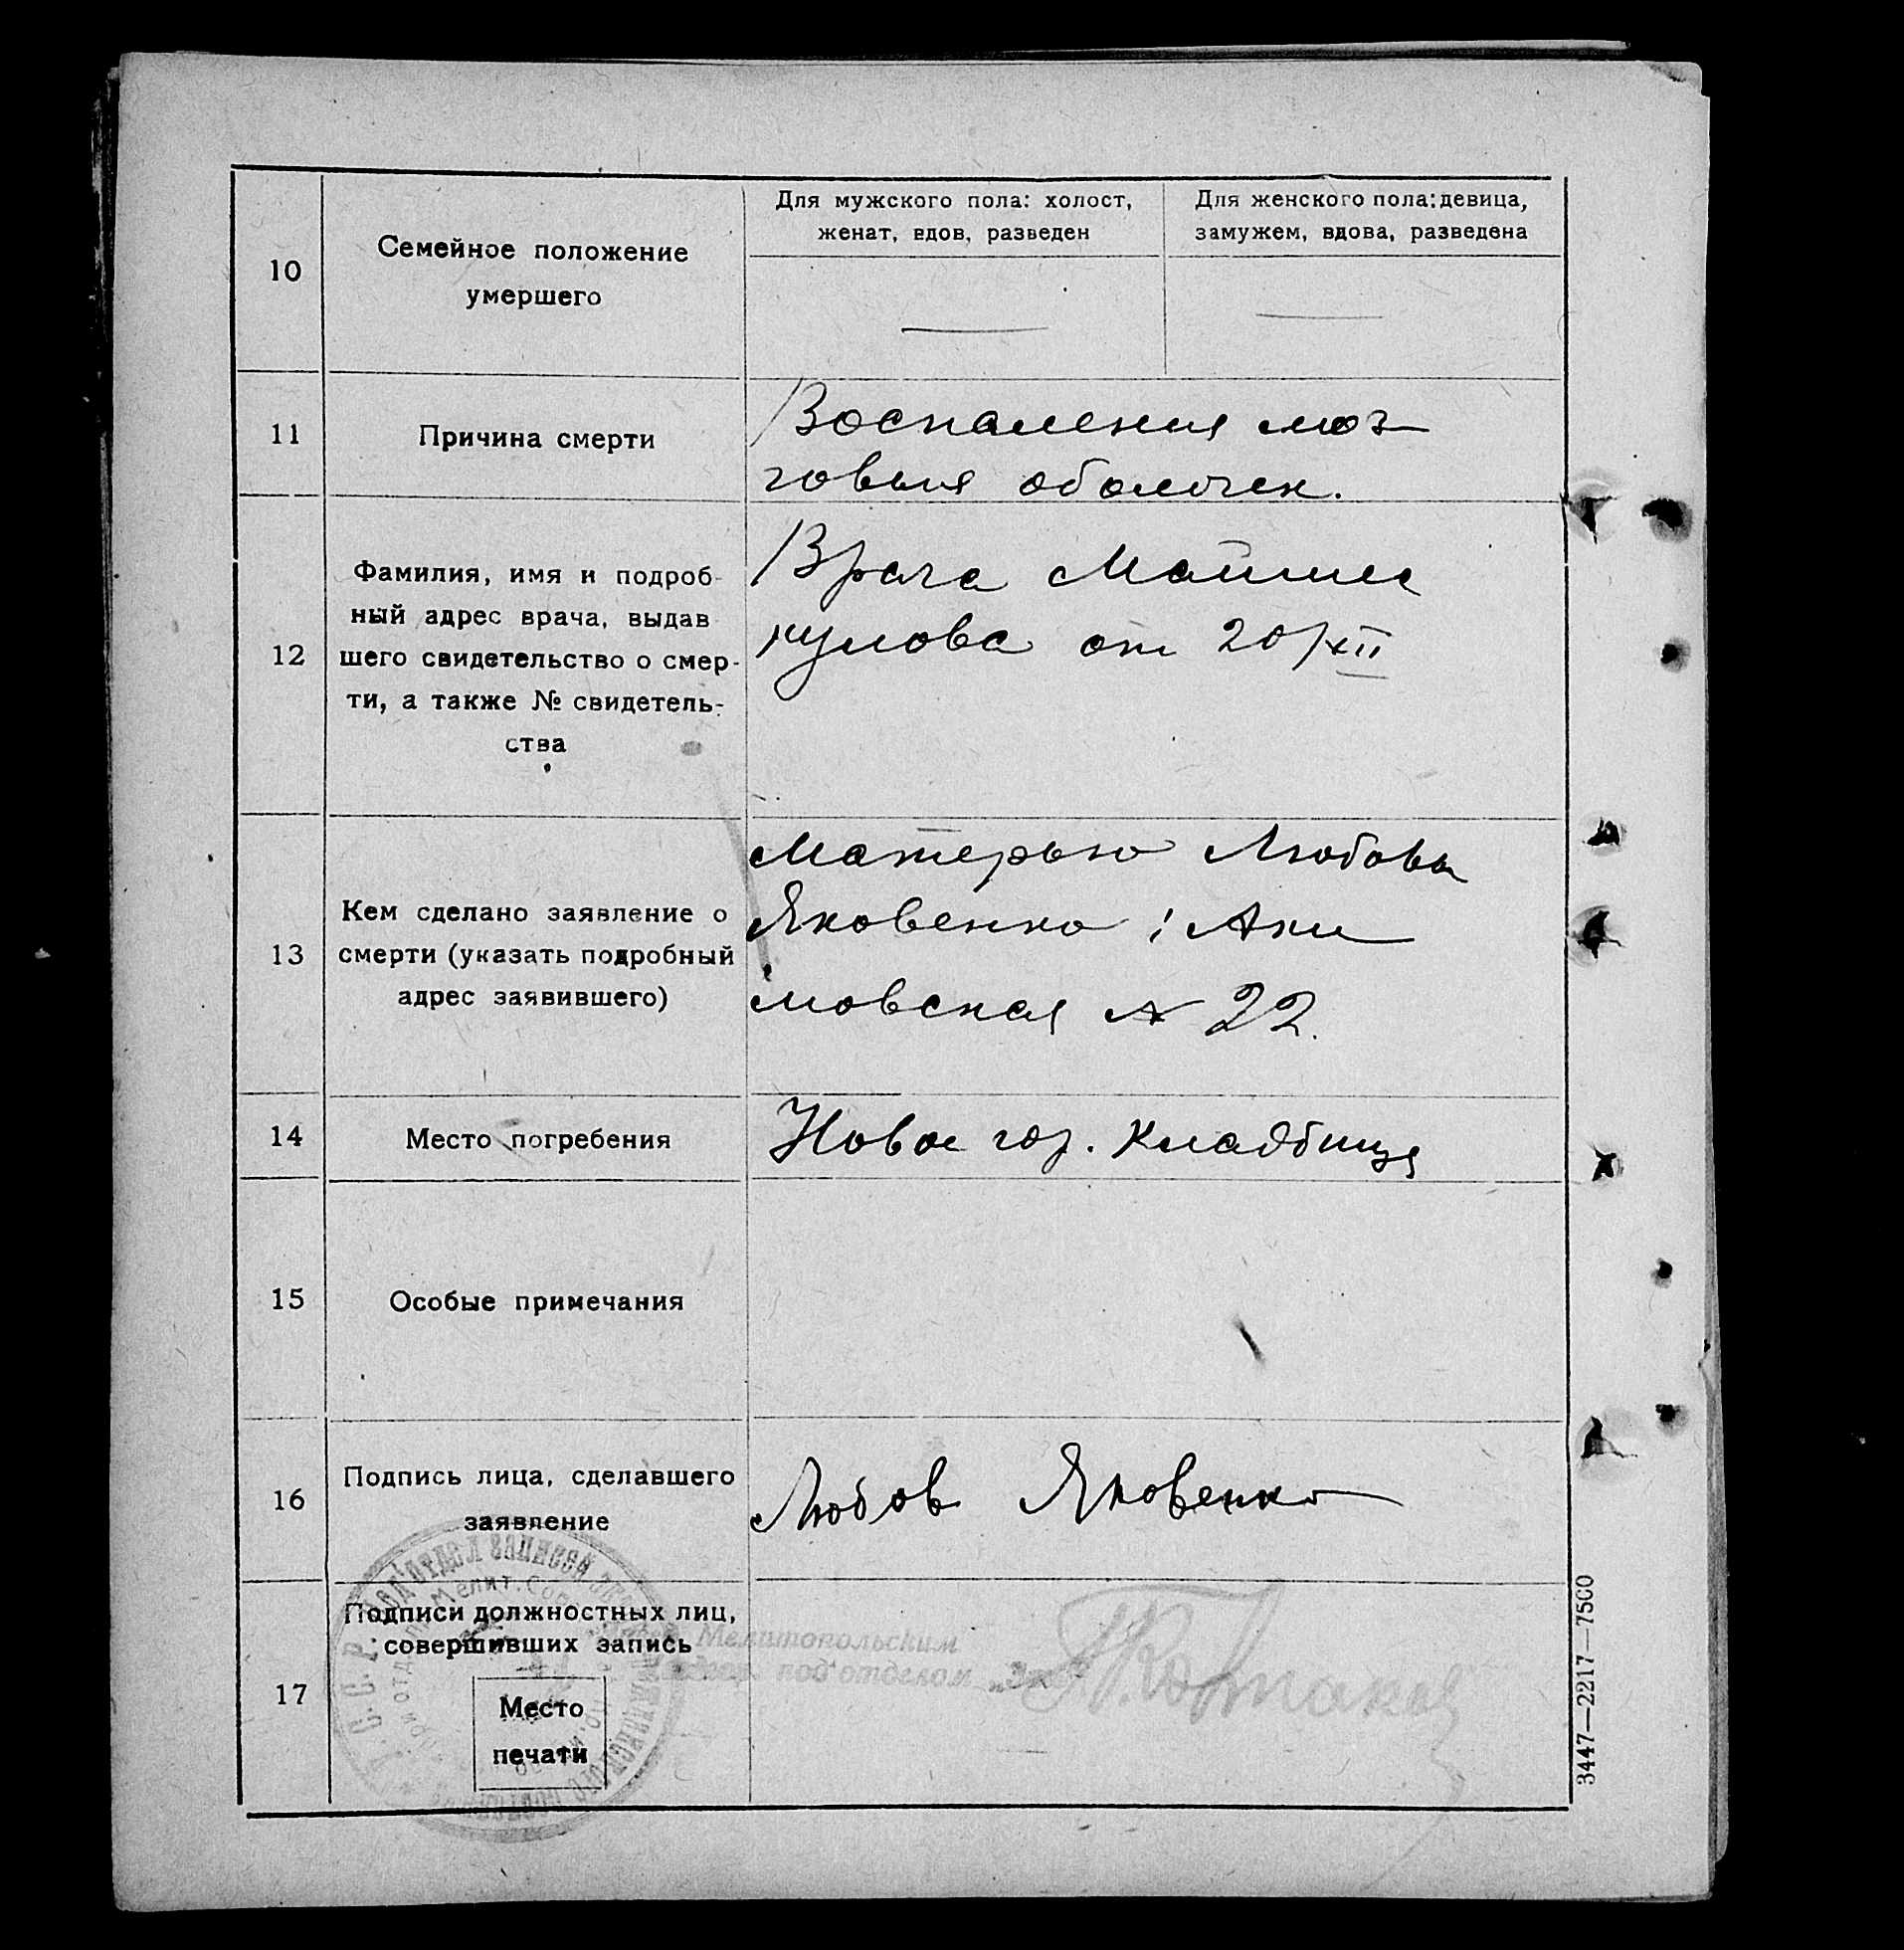 10
Семейное положение
умершего
Для мужского пола: холост,
женат, вдов, разведен
Для женского пола: девица,
замужем, вдова, разведена
11
Причина смерти
Воспаления моз-
говыя оболочек.
12
Фамилия, имя и подроб-
ный адрес врача, выдав
шего свидетельство о смер-
ти, а также № свидетель-
ства
Врача
от 20/XII
13
Кем сделано заявление о
смерти (указать подробный
адрес заявившего)
Матерью Любовь
Яковенко; Аки
мовская № 22.
14
Место погребения
Новое гор. Кладбище
15
Особые примечания
16
Подпись лица, сделавшего
заявление
Любов Яковенко
17
Подписи должностных лиц,
совершивших запись
Место
печати
Мелитопольским
под'отделом
3447—2217—7500